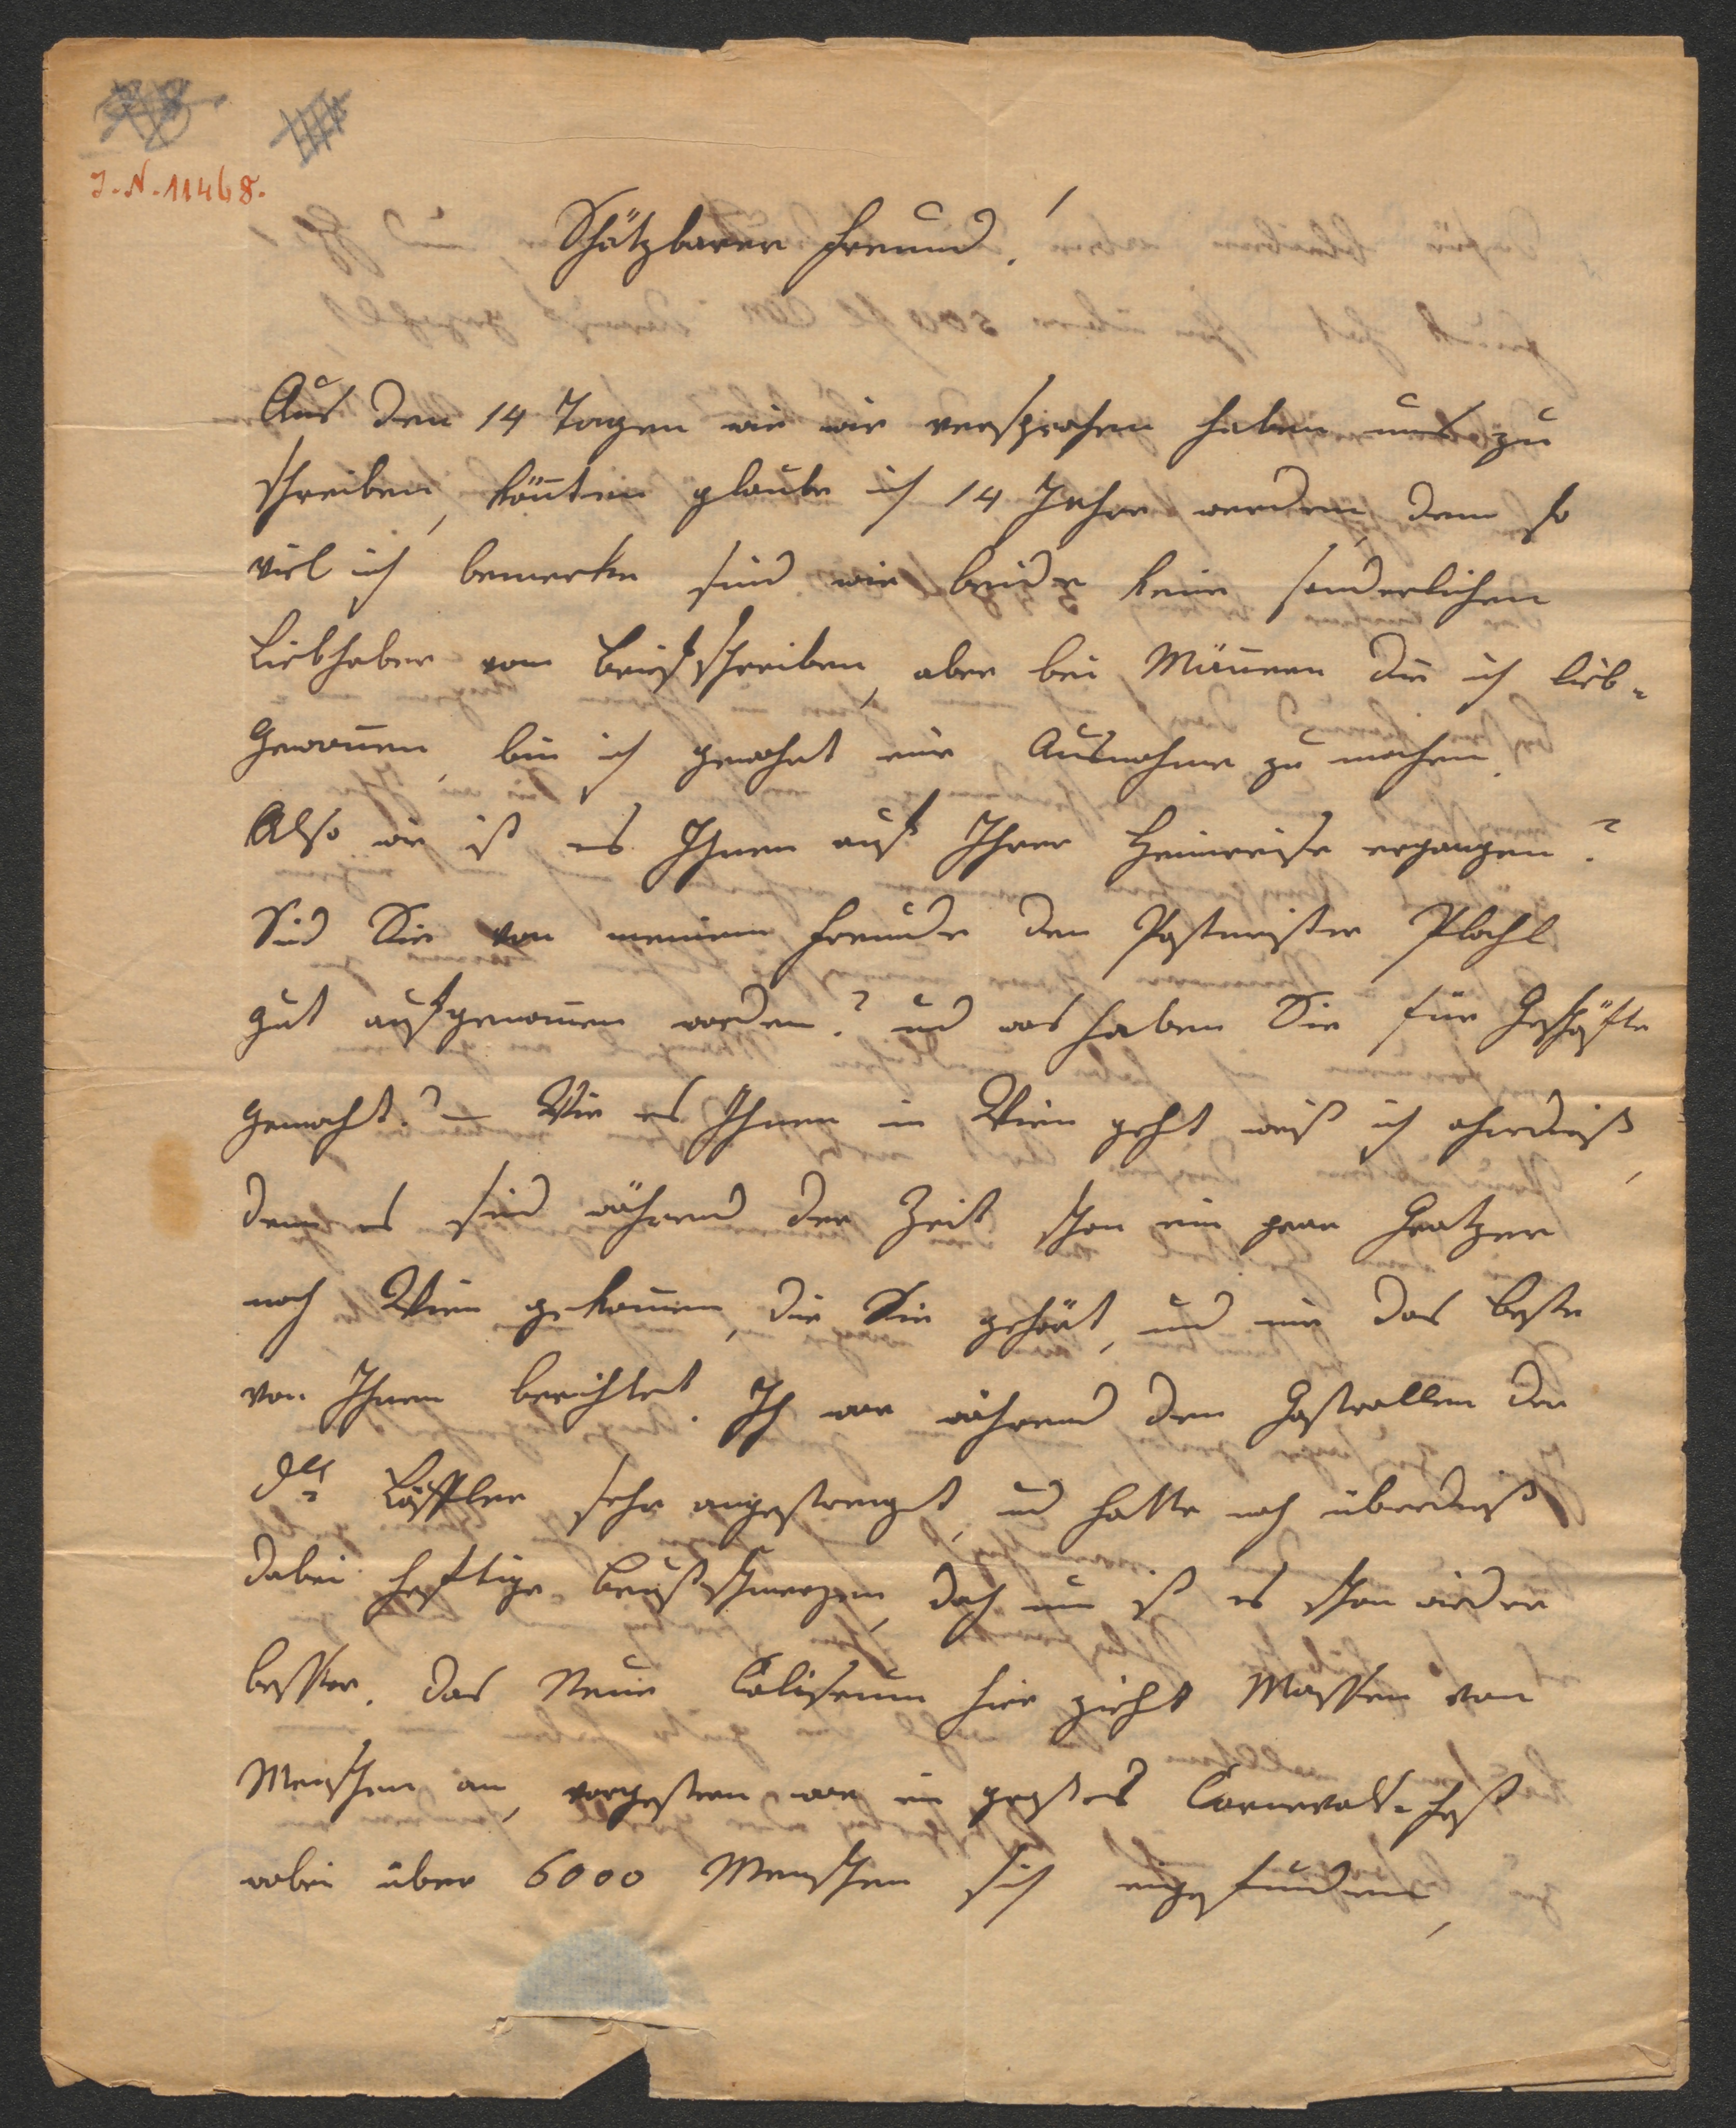 J. N. 11468.
Schätzbarer Freund!
Aus den 14 Tagen wie wir versprochen haben uns zu
schreiben, könnten glaube ich 14 Jahre werden, denn so
viel ich bemerke sind wir beide keine sonderlichen
Liebhaber vom Briefschreiben, aber bei Männern die ich lieb-
gewonnen, bin ich gewohnt eine Ausnahme zu machen.
Also wie ist es Ihnen auf Ihrer Heimreise ergangen?
Sind Sie von meinem Freunde den Postmeister Plochl
gut aufgenommen worden? und was haben Sie für Geschäfte
gemacht? – Wie es Ihnen in Wien geht weiß ich ohnedieß,
denn es sind während der Zeit schon ein paar Gratzer
nach Wien gekommen, die Sie gehört, und mir das beste
von Ihnen berichtet. Ich war während den Gastrollen der
Dlle Löffler sehr angestrengt, und hatte noch überdieß
dabei heftige Brustschmerzen, doch nun ist es schon wieder
besser. Das Neue Coliseum hier zieht Massen von
Menschen an, vorgestern war ein großes Carneval-Fest
wobei über 6000 Menschen sich eingefunden,